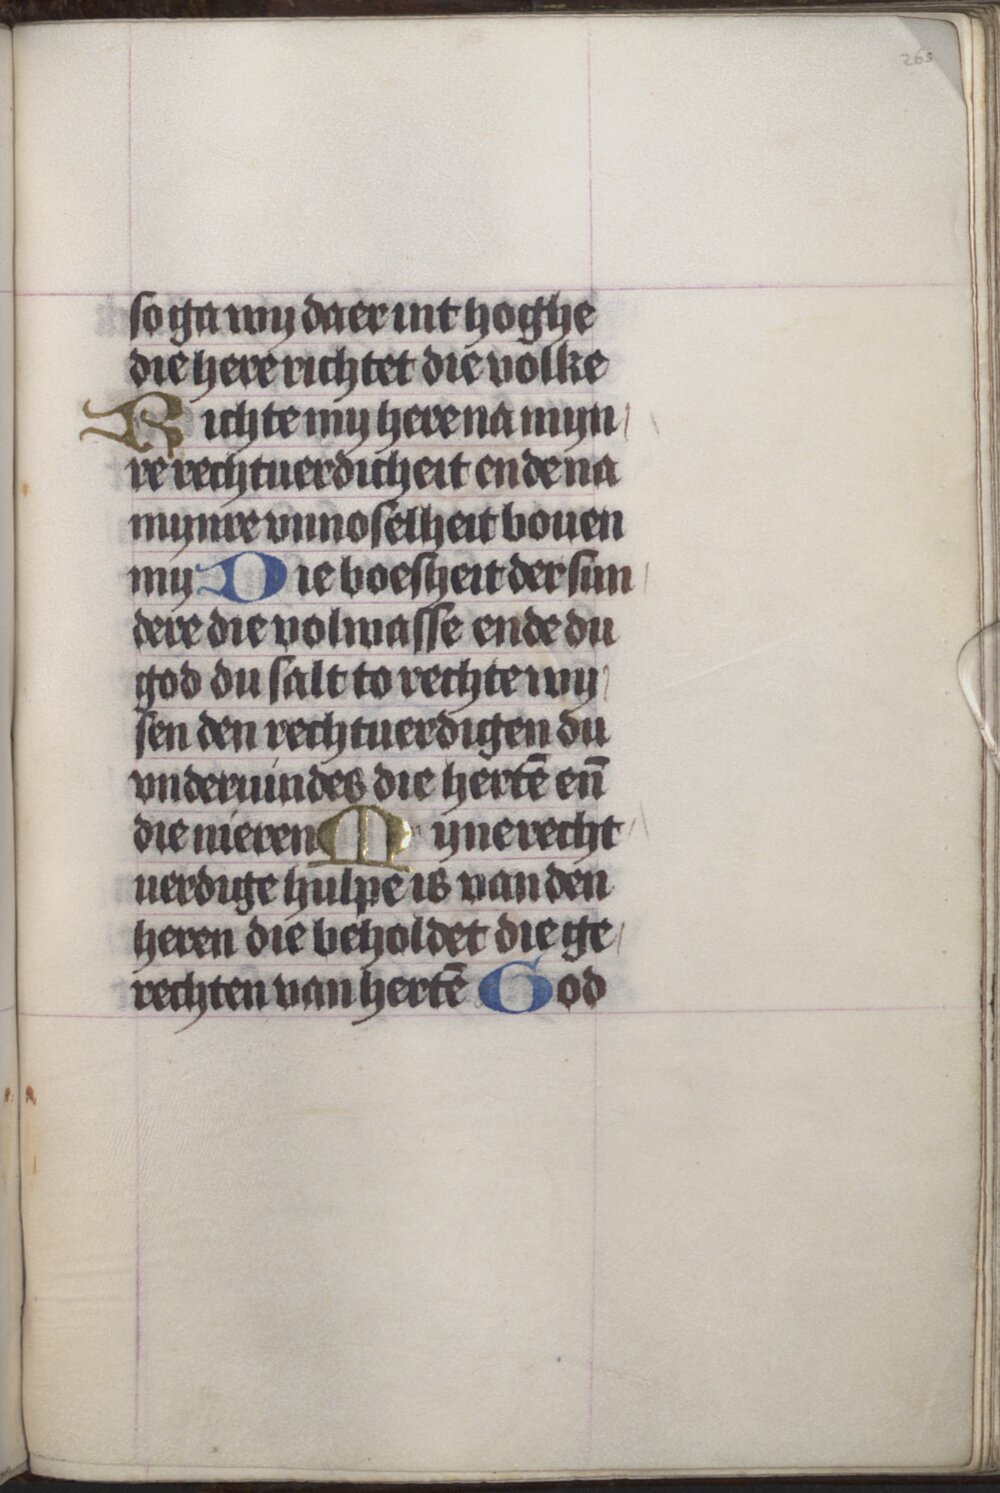 265
so ga wy daer int hoghe
die here richtet die volke
Richte my here na myn/
re rechtuerdicheit ende na
mynre vnnoselheit bouen
my Die boesheit der sun/
dere die volwasse ende du
god du salt to rechte wy/
sen den rechtuerdigen du
vnderuindes die hertē en̄
die nieren Myne recht/
uerdige hulpe is van den
heren die beholdet die ge/
rechten van hertē God